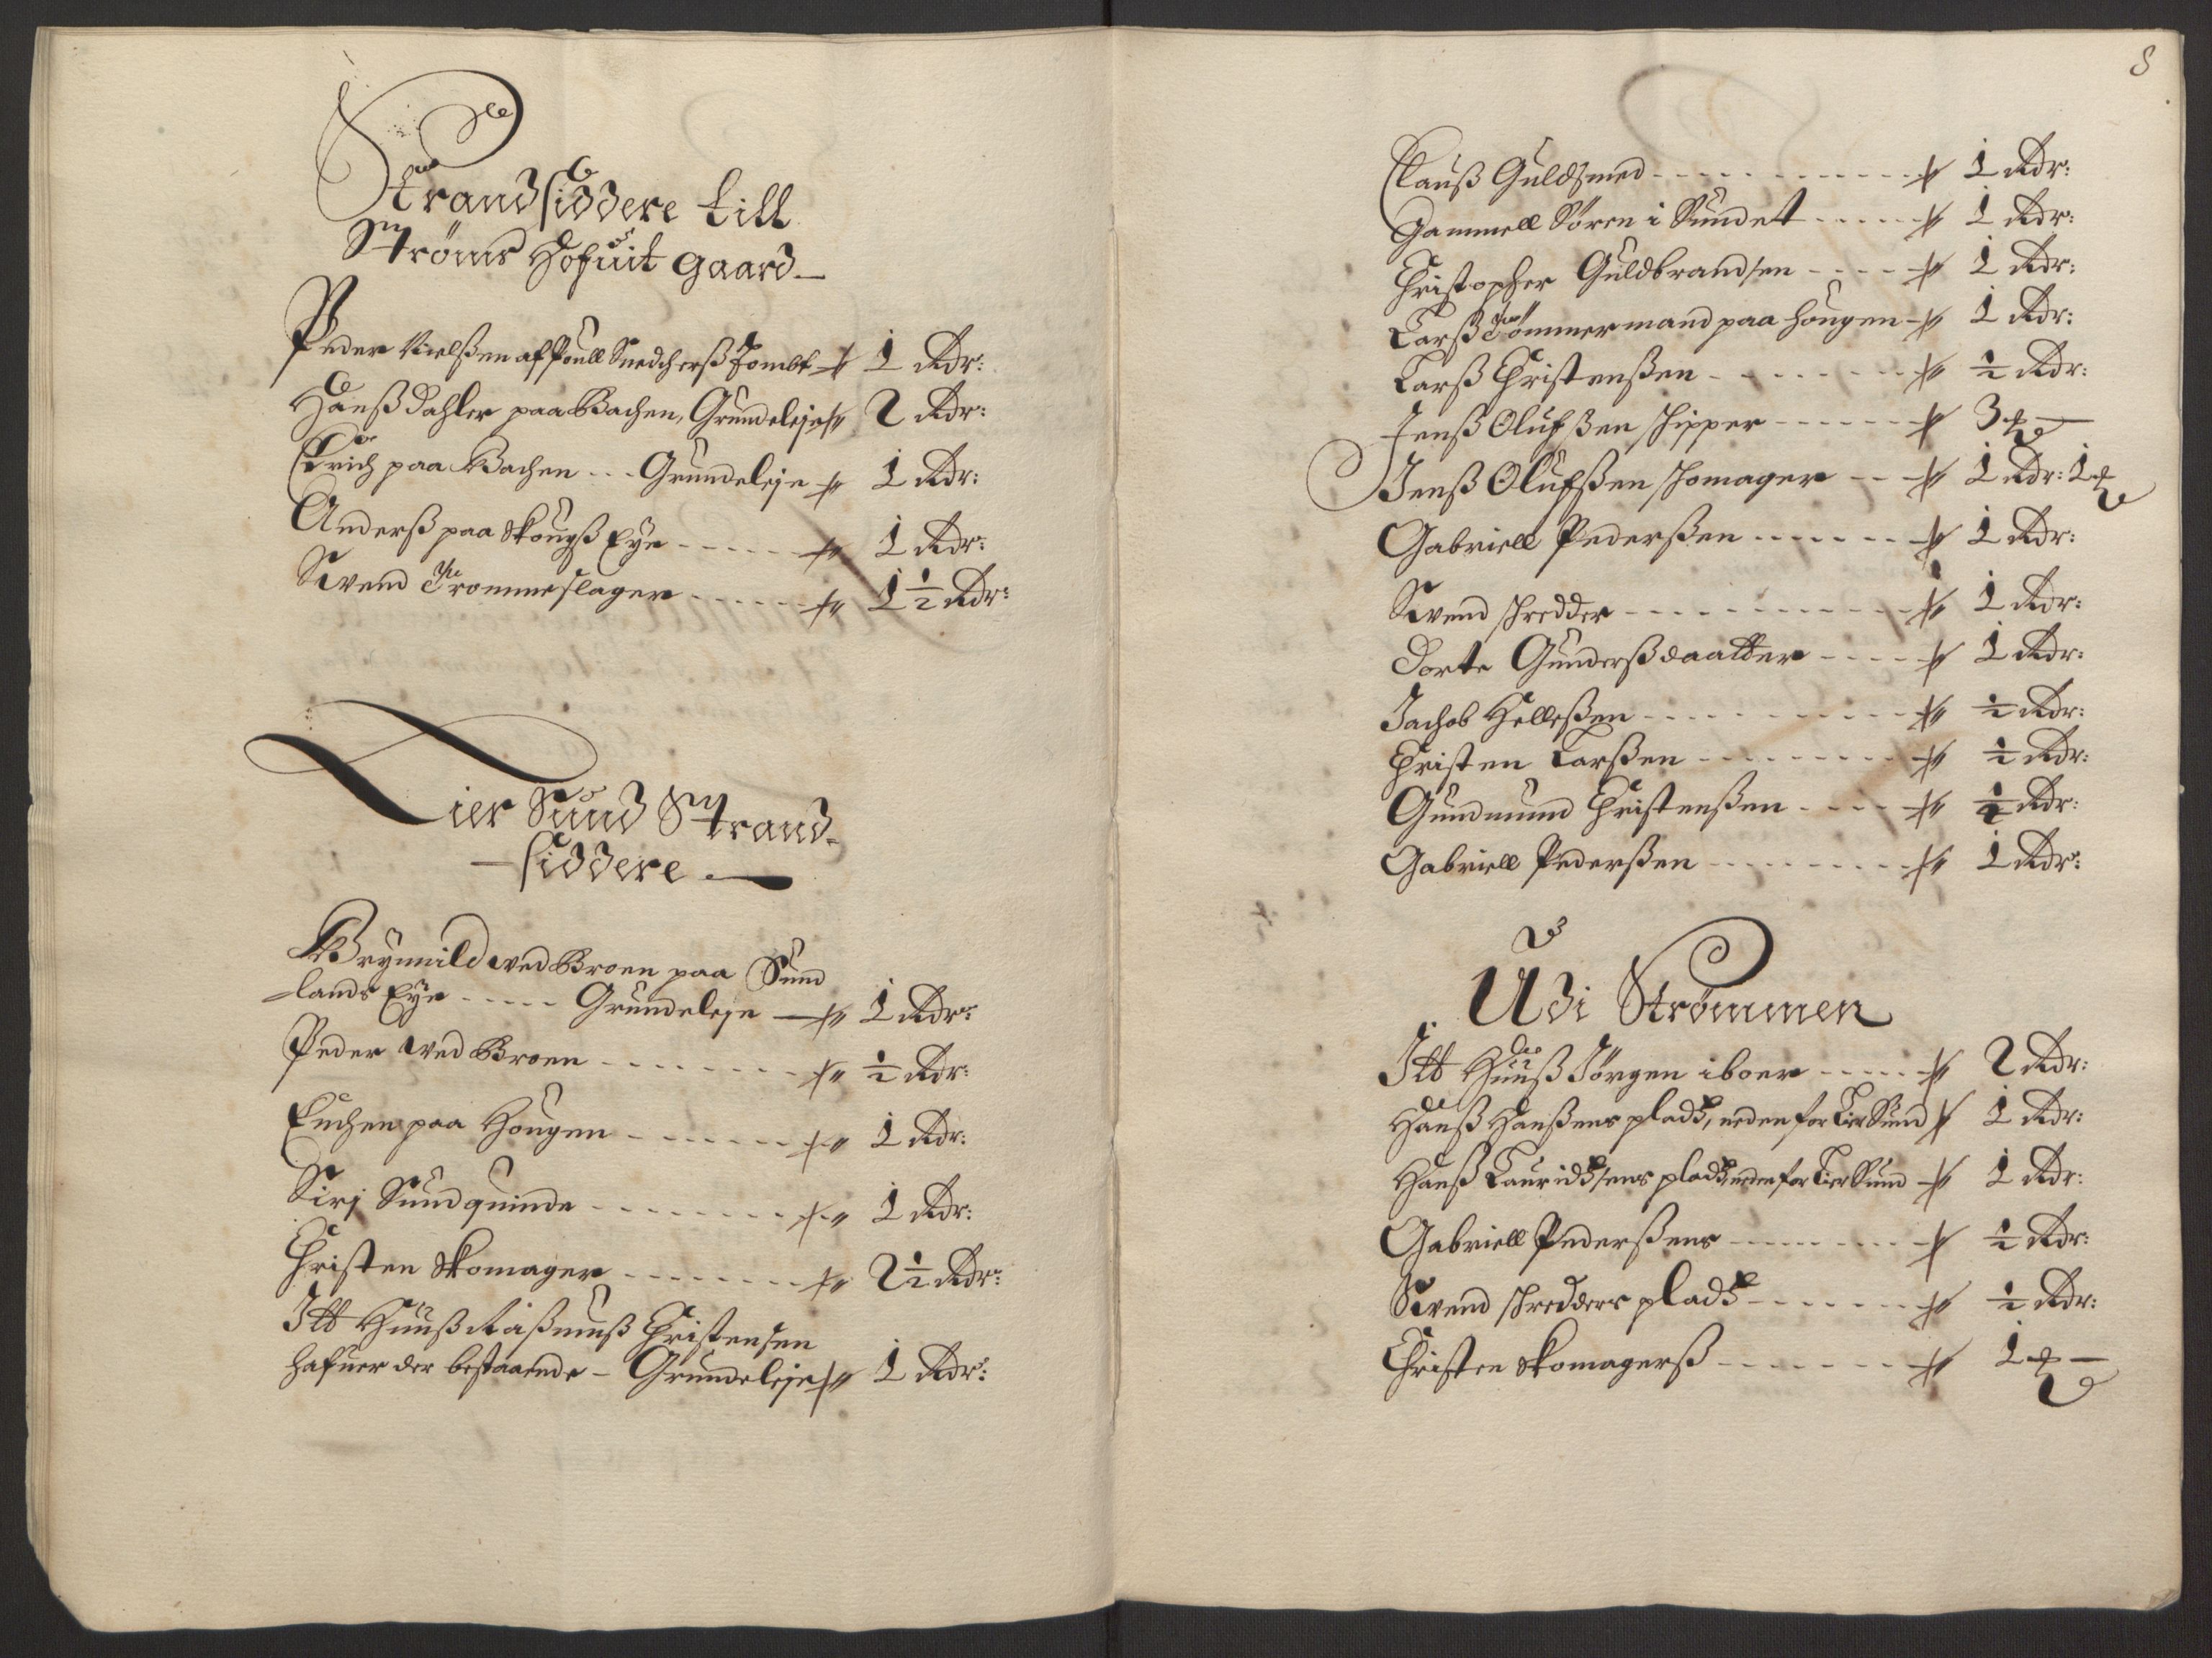 Strandsiddere till
Ströms Hofuit gaard
Peder Nielßen af Poull Snedcherß Tombt 1 Rdr:
Hanß Dahler paa Bachen, Grundeleje 2 Rdr:
Erich paa Bachen --- Grundeleje 1 Rdr:
Anderß paa Skougß Eye ----- 1 Rdr:
Svend Trommeslager ----- 1½ Rdr:
Lier Sund Strand-
siddere
Brynnild ved Broen paa Sund
lands Eye ----- Grundeleje 1 Rdr:
Peder ved Broen ------- ½ Rdr:
paa Hougen ------- 1 Rdr:
Siri Sundquinde -------- 1 Rdr:
Christen Skomager ------- 2½ Rdr:
Itt Huuß Raßmuß Christensen
hafuer der bestaaende - Grundeleje 1 Rdr:
8
Clauß Guldsmed ----------- 1 Rdr:
Gammell Sören i Sundet ----- 1 Rdr:
Christopher Guldbrandsen ---- 1 Rdr:
Larß Tömmermand paa Hougen 1 Rdr:
Larß Christenßen -------- ½ Rdr:
Jenß Olufßen skipper ------ 3 
Jenß Olufßen skomager --- 1 Rdr: 1 
Gabriell Pederßen ------- 1 Rdr:
Svend skredder ---------- 1 Rdr:
Dorte Gunderßdaatter ---- 1 Rdr:
Jachob Helleßen --------- ½ Rdr:
Christen Larßen --------- ½ Rdr:
Gundmund Christenßen ---- ½ Rdr:
Gabriell Pederßen --------- 1 Rdr:
Udi Strømmen
Itt Huuß Jörgen iboer ----- 2 Rdr:
Hanß Hanßens pladtz, neden for Lier Sund 1 Rdr:
Hanß Lauridtzsens pladtz neden for Lier Sund 1 Rdr:
Gabriell Pederßens -------- ½ Rdr:
Svend skredders pladtz ------ ½ Rdr:
Christen Skomagerß ------- 1